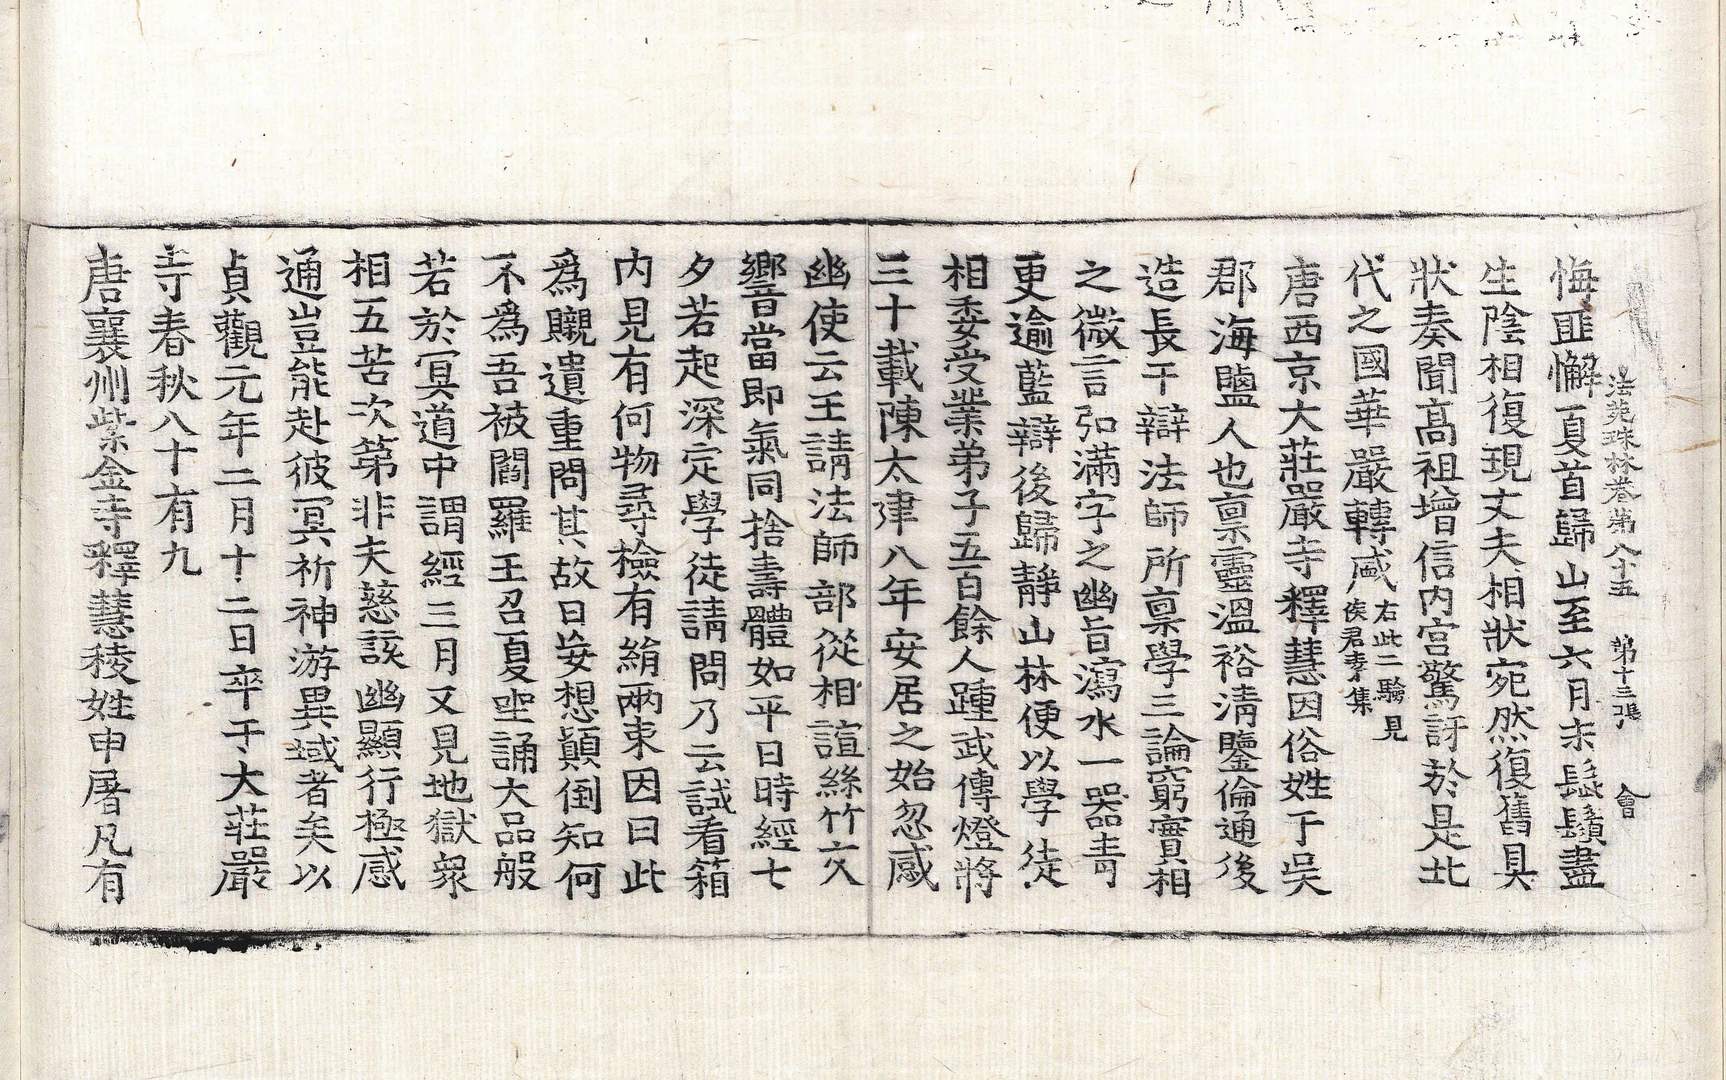 法苑珠林卷第八十五　第十三張　會
悔匪懈夏首歸山至六月末髭鬚盡
生陰相復現丈夫相狀宛然復舊具
狀奏聞髙祖增信內宮驚訝於是北
代之國華嚴轉盛右此二驗見侯君素集
唐西京大莊嚴寺釋慧因俗姓于吳
郡海鹽人也禀靈溫裕清鑒倫通後
造長干辯法師所禀學三論窮實相
之微言弘滿字之幽旨瀉水一器青
更逾藍辯後歸靜山林便以學徒
相委受業弟子五百餘人踵武傳燈將
三十載陳太建八年安居之始忽感
幽使云王請法師部從相諠絲竹交
響當即氣同捨壽體如平日時經七
夕若起深定學徒請問乃云試看箱
內見有何物尋檢有絹兩束因曰此
爲䞋遺重問其故曰妄想顛倒知何
不爲吾被閻羅王召夏坐誦大品般
若於冥道中謂經三月又見地獄衆
相五苦次第非夫慈該幽顯行極感
通豈能赴彼冥祈神游異域者矣以
貞觀元年二月十二日卒于大莊嚴
寺春秋八十有九
唐襄州紫金寺釋慧稜姓申屠凡有